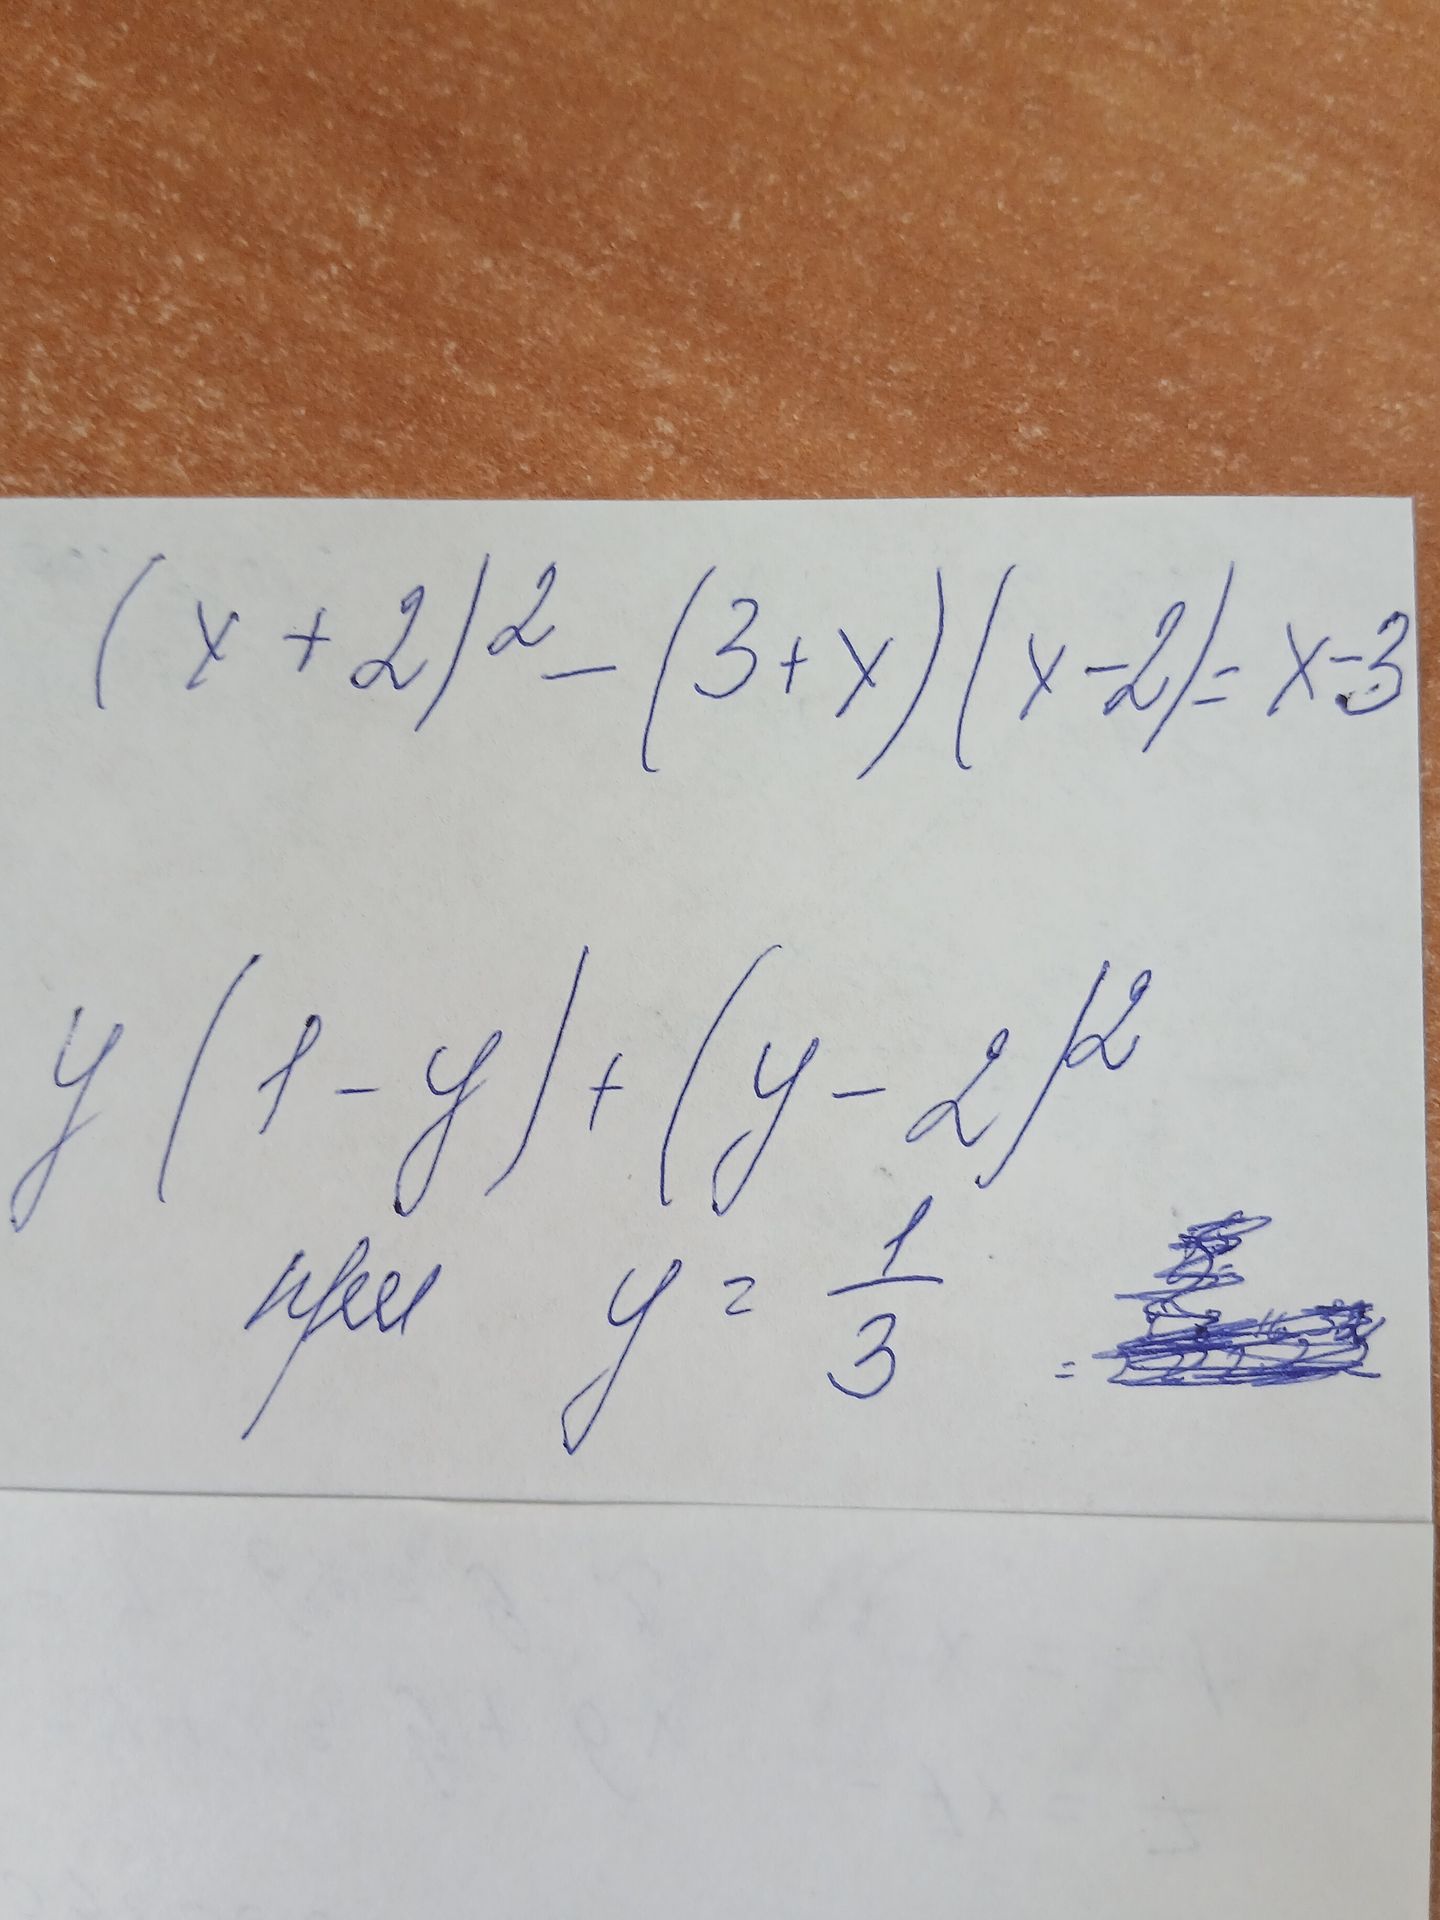 (x + 2)² - (3 + x)(x - 2) = x - 3
y(1 - y) + (y - 2)²
при y = 1/3 =